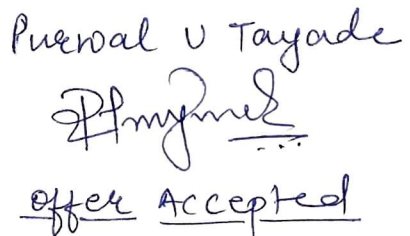 Purwal U Tayade
Offer Accepted